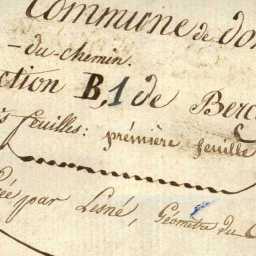 Commune de don
-du-chemin.
ction B,1 de Berc
feuilles: première feuille
ée par Lesné, Géomètre du C